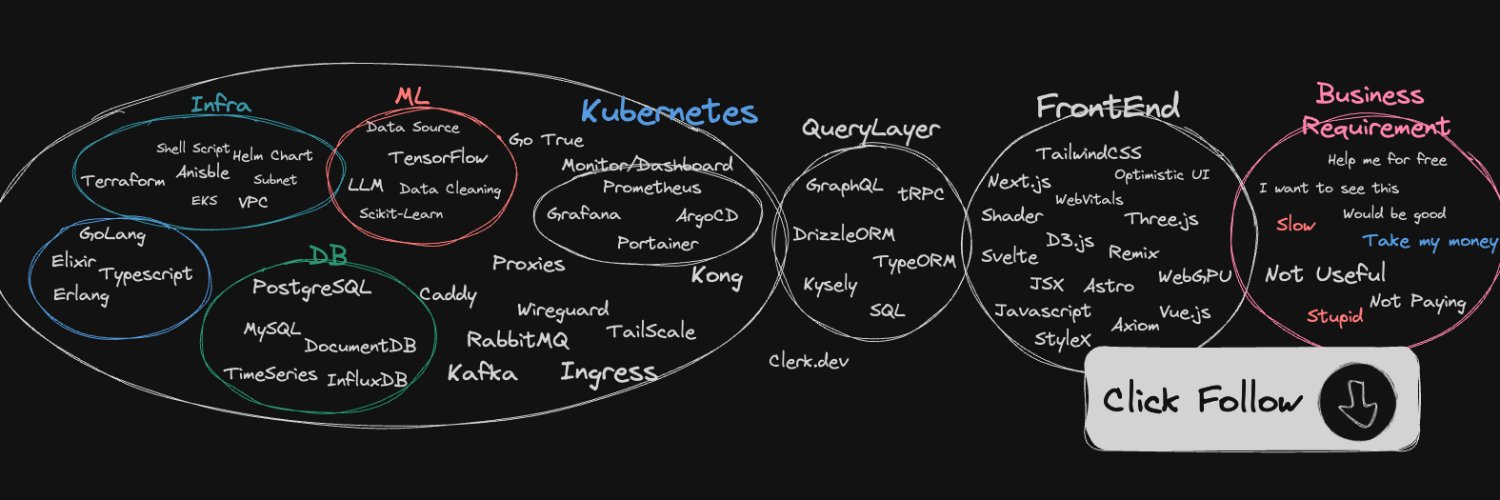 Infra
Shell Script
Helm Chart
Terraform
Anisble
Subnet
EKS
VPC
ML
Data Source
TensorFlow
LLM
Data Cleaning
Scikit-Learn
GoLang
Elixir
Typescript
Erlang
DB
PostgreSQL
MySQL
DocumentDB
TimeSeries
InfluxDB
Kubernetes
Go True
Monitor/Dashboard
Prometheus
Grafana
ArgoCD
Portainer
Proxies
Kong
Caddy
Wireguard
RabbitMQ
TailScale
Kafka
Ingress
QueryLayer
GraphQL
tRPC
DrizzleORM
TypeORM
Kysely
SQL
Clerk.dev
FrontEnd
TailwindCSS
Next.js
Optimistic UI
WebVitals
Shader
Three.js
D3.js
Svelte
Remix
JSX
Astro
WebGPU
Javascript
Vue.js
Axiom
StyleX
Business
Requirement
Help me for free
I want to see this
Would be good
Slow
Take my money
Not Useful
Not Paying
Stupid
Click Follow